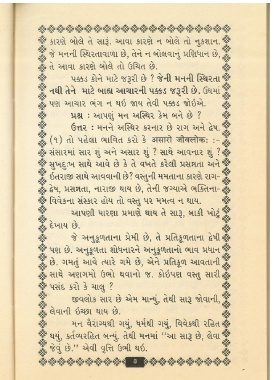 કારણે બોલે તે સારું. આવા કારણે ન બોલે તો નુકશાન.
જે મનની સ્થિરતાવાળા છે, તેને ન બોલવાનું પ્રણિધાન છે,
તે આવા કારણે બોલે તો ઉચિત છે.
પક્કડ કોને માટે જરૂરી છે ? જેની મનની સ્થિરતા
નથી તેને માટે બાહ્ય આચારની પક્કડ જરૂરી છે. ઉદ્યમાં
પણ આચાર ભંગ ન થઈ જાય તેવી પક્કડ જોઈએ.
પ્રશ્ન : આપણું મન અસ્થિર કેમ બને છે ?
ઉત્તર : મનને અસ્થિર કરનાર છે રાગ અને દ્વેષ.
(૧) તો પહેલા ભાવિત કરો કે असारो जीवलोकः :-
સંસારમાં સાર શું અને અસાર શું ? સાથે આવનાર શું ?
સુખદુઃખ સાથે આવે છે કે તે વખતે કરેલી પ્રસન્નતા અને
ઈતરાજી સાથે આવવાની છે? વસ્તુની મમતાના કારણે રાગ-
દ્વેષ, પ્રસન્નતા, નારાજી થાય છે, તેની જગ્યાએ ભક્તિના-
વિવેકના સંસ્કાર હોય તો વસ્તુ પર મમત્વ ન થાય.
આપણી ધારણા પ્રમાણે થાય તે સારું, બાકી ખોટું
દેખાય છે.
જે અનુકૂળતાના પ્રેમી છે, તે પ્રતિકૂળતાના દ્વેષી
પણ છે. અનુકૂળતા શોધનારને અનુકૂળતાનો ભાવ પ્રધાન
છે. ગમતું આવે ત્યારે ગમે છે, એને પ્રતિકૂળ આવતાની
સાથે અણગમો ઉભો થવાનો જ. કોઈપણ વસ્તુ સારી
પસંદ કરો કે ચાલુ ?
જીવલોક સાર છે એમ માન્યું, તેથી સારું જોવાની,
લેવાની ઇચ્છા થાય છે.
મન વૈરાગ્યથી ગયું, ધર્મથી ગયું, વિવેકથી રહિત
થયું, કર્તવ્યરહિત બન્યું. તેથી મનમાં "આ સારું છે, લેવા
જેવું છે." એવી વૃત્તિ ઉભી થઈ.